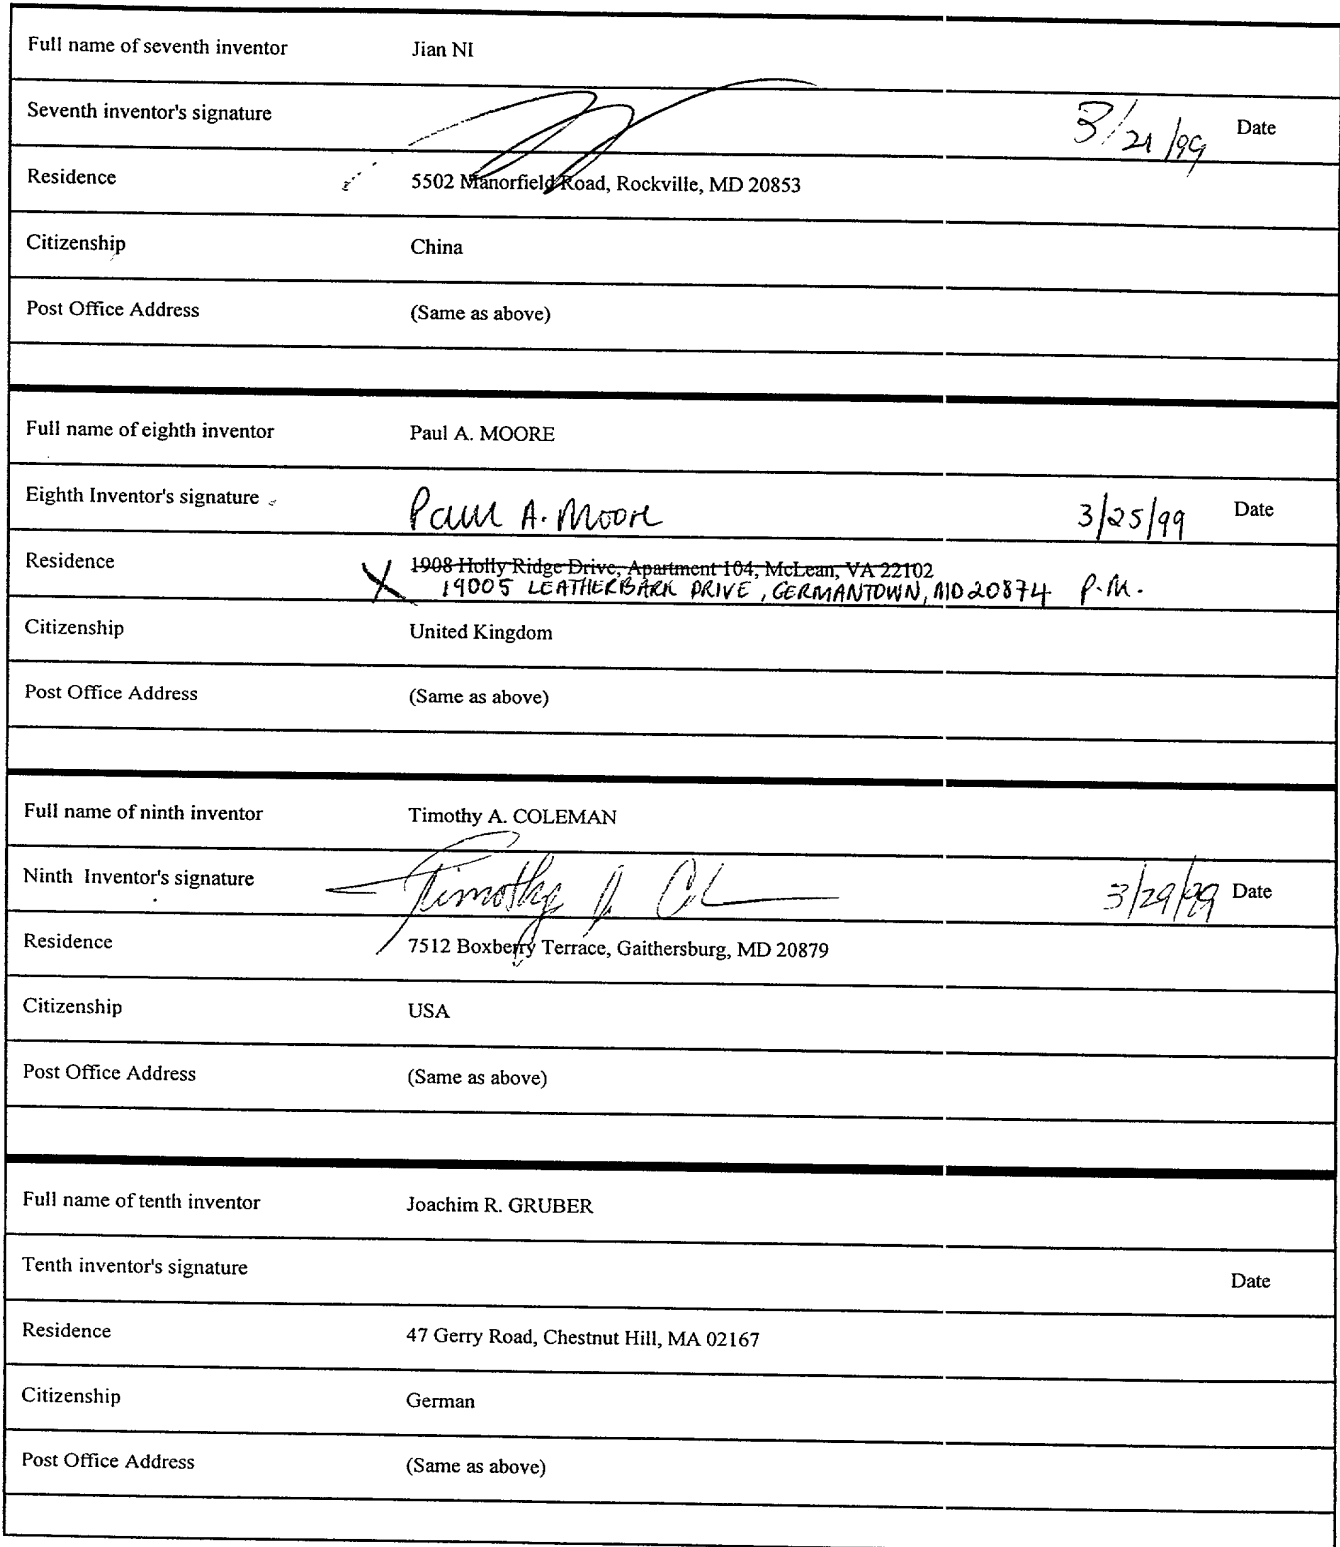 Full name of seventh inventor Jian NI
Seventh inventor's signature 3/21/99 Date
Residence 5502 Manorfield Road, Rockville, MD 20853
Citizenship China
Post Office Address (Same as above)
Full name of eighth inventor Paul A. MOORE
Eighth Inventor's signature Paul A. Moore 3/25/99 Date
Residence 1908 Holly Ridge Drive, Apartment 104, McLean, VA 22102
X 19005 LEATHERBARK DRIVE, GERMANTOWN, MD 20874 P.M.
Citizenship United Kingdom
Post Office Address (Same as above)
Full name of ninth inventor Timothy A. COLEMAN
Ninth Inventor's signature Timothy A 3/29/99 Date
Residence 7512 Boxberry Terrace, Gaithersburg, MD 20879
Citizenship USA
Post Office Address (Same as above)
Full name of tenth inventor Joachim R. GRUBER
Tenth inventor's signature Date
Residence 47 Gerry Road, Chestnut Hill, MA 02167
Citizenship German
Post Office Address (Same as above)